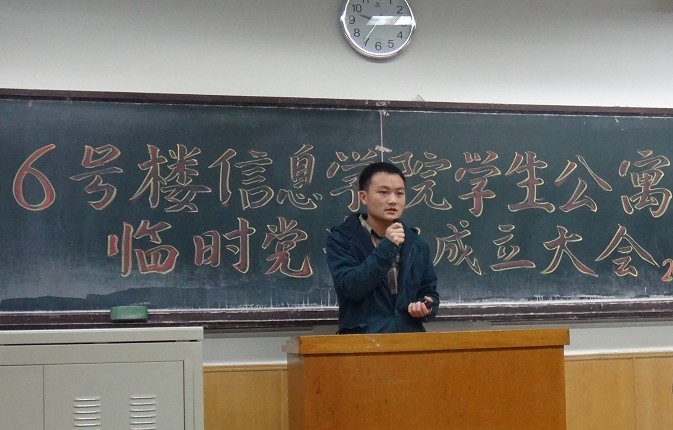 6号楼信息学院学生公寓
临时党 成立大会